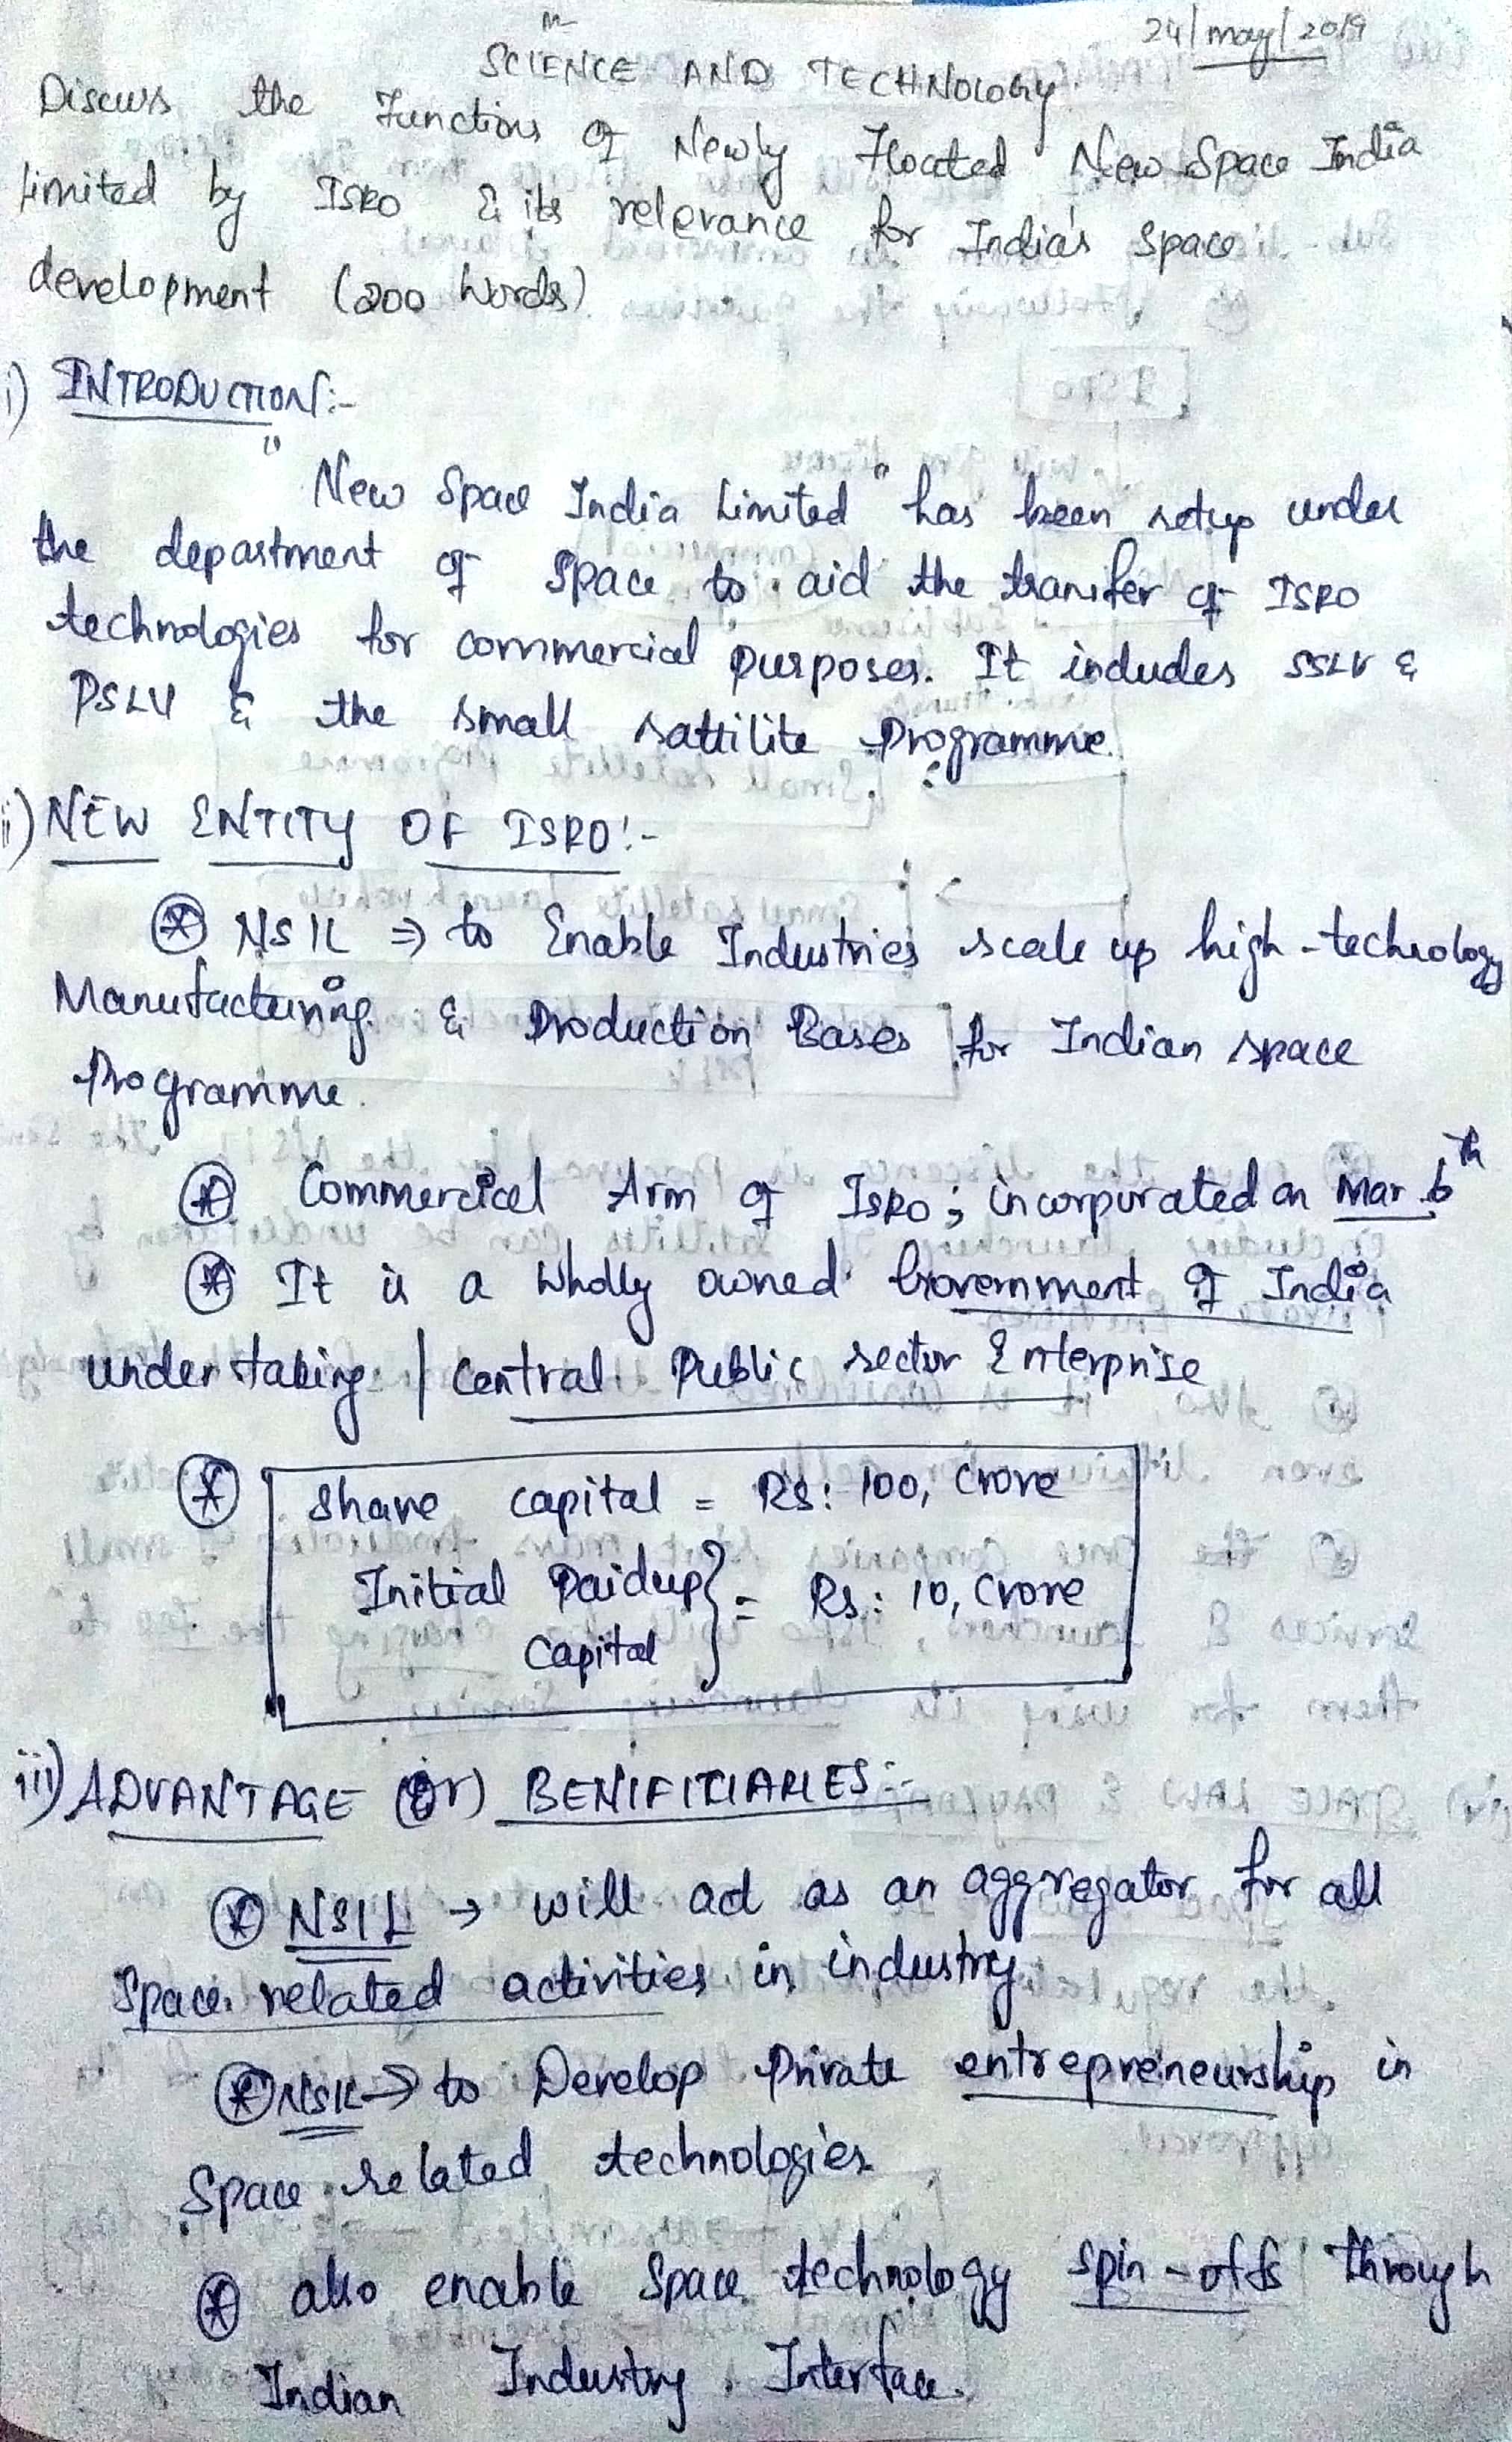 24/may/2019
SCIENCE AND TECHNOLOGY
Discuss the Functions of Newly Floated New Space India
Limited by ISRO & its relevance for India's Space
development (200 Words)
i) INTRODUCTION:-
"New Space India Limited" has been setup under
the department of Space to aid the transfer of ISRO
technologies for commercial purposes. It includes SSLV &
PSLV & the small sattilite programme.
ii) NEW ENTITY OF ISRO:-
⊛ NSIL ⇒ to Enable Industries scale up high-technology
Manufacturing & Production Bases for Indian space
Programme.
⊛ Commercical Arm of ISRO; incorporated on Mar 6th
⊛ It is a Wholly owned Government of India
undertaking / Central Public sector Enterprise
⊛ Share capital = Rs: 100, Crore
Initial Paidup } = Rs: 10, Crore
Capital
iii) ADVANTAGE (or) BENIFITIARIES:-
⊛ NSIL → will act as an aggregator for all
Space related activities in industry
⊛ NSIL → to Develop Private entrepreneurship in
Space related technologies
⊛ also enable Space technology spin-offs through
Indian Industry Interface.